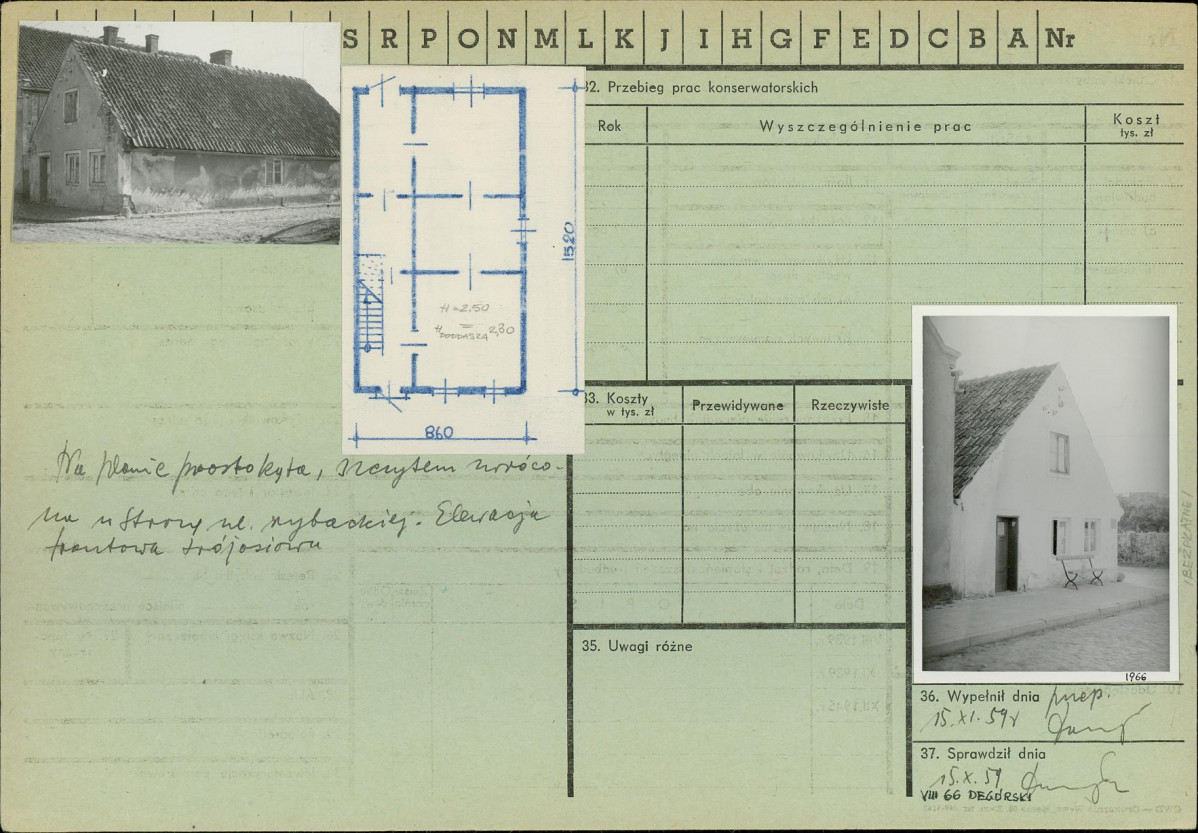 S R P O N M L K J I H G F E D C B A Nr
32. Przebieg prac konserwatorskich
Rok
Wyszczególnienie prac
Koszt
tys. zł
1520
H=2.50
H PODDASZA 2,30
860
33. Koszty
w tys. zł
Przewidywane
Rzeczywiste
Na planie prostokąta, szczytem zwróco-
na u strony ul. rybackiej. Elewacja
frontowa trójosiowa
35. Uwagi różne
1966
36. Wypełnił dnia
15.XI.59r
37. Sprawdził dnia
15.X.59
VIII 66 DEGÓRSKI